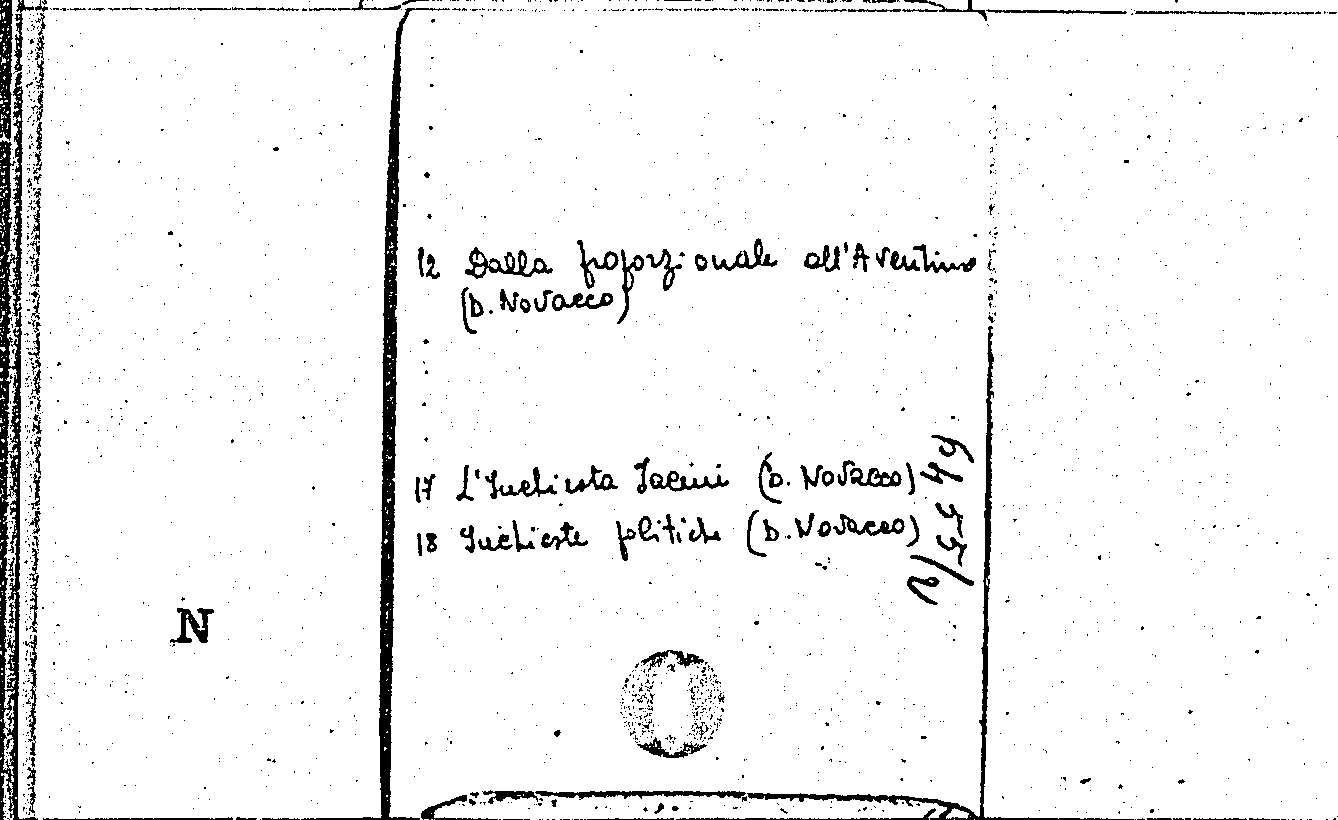 12 Dalla proporzionale all'Aventino
(D. Novacco)
17 L'Inchiesta Jacini (D. Novacco)
18 Inchieste politiche (D. Novacco)
N